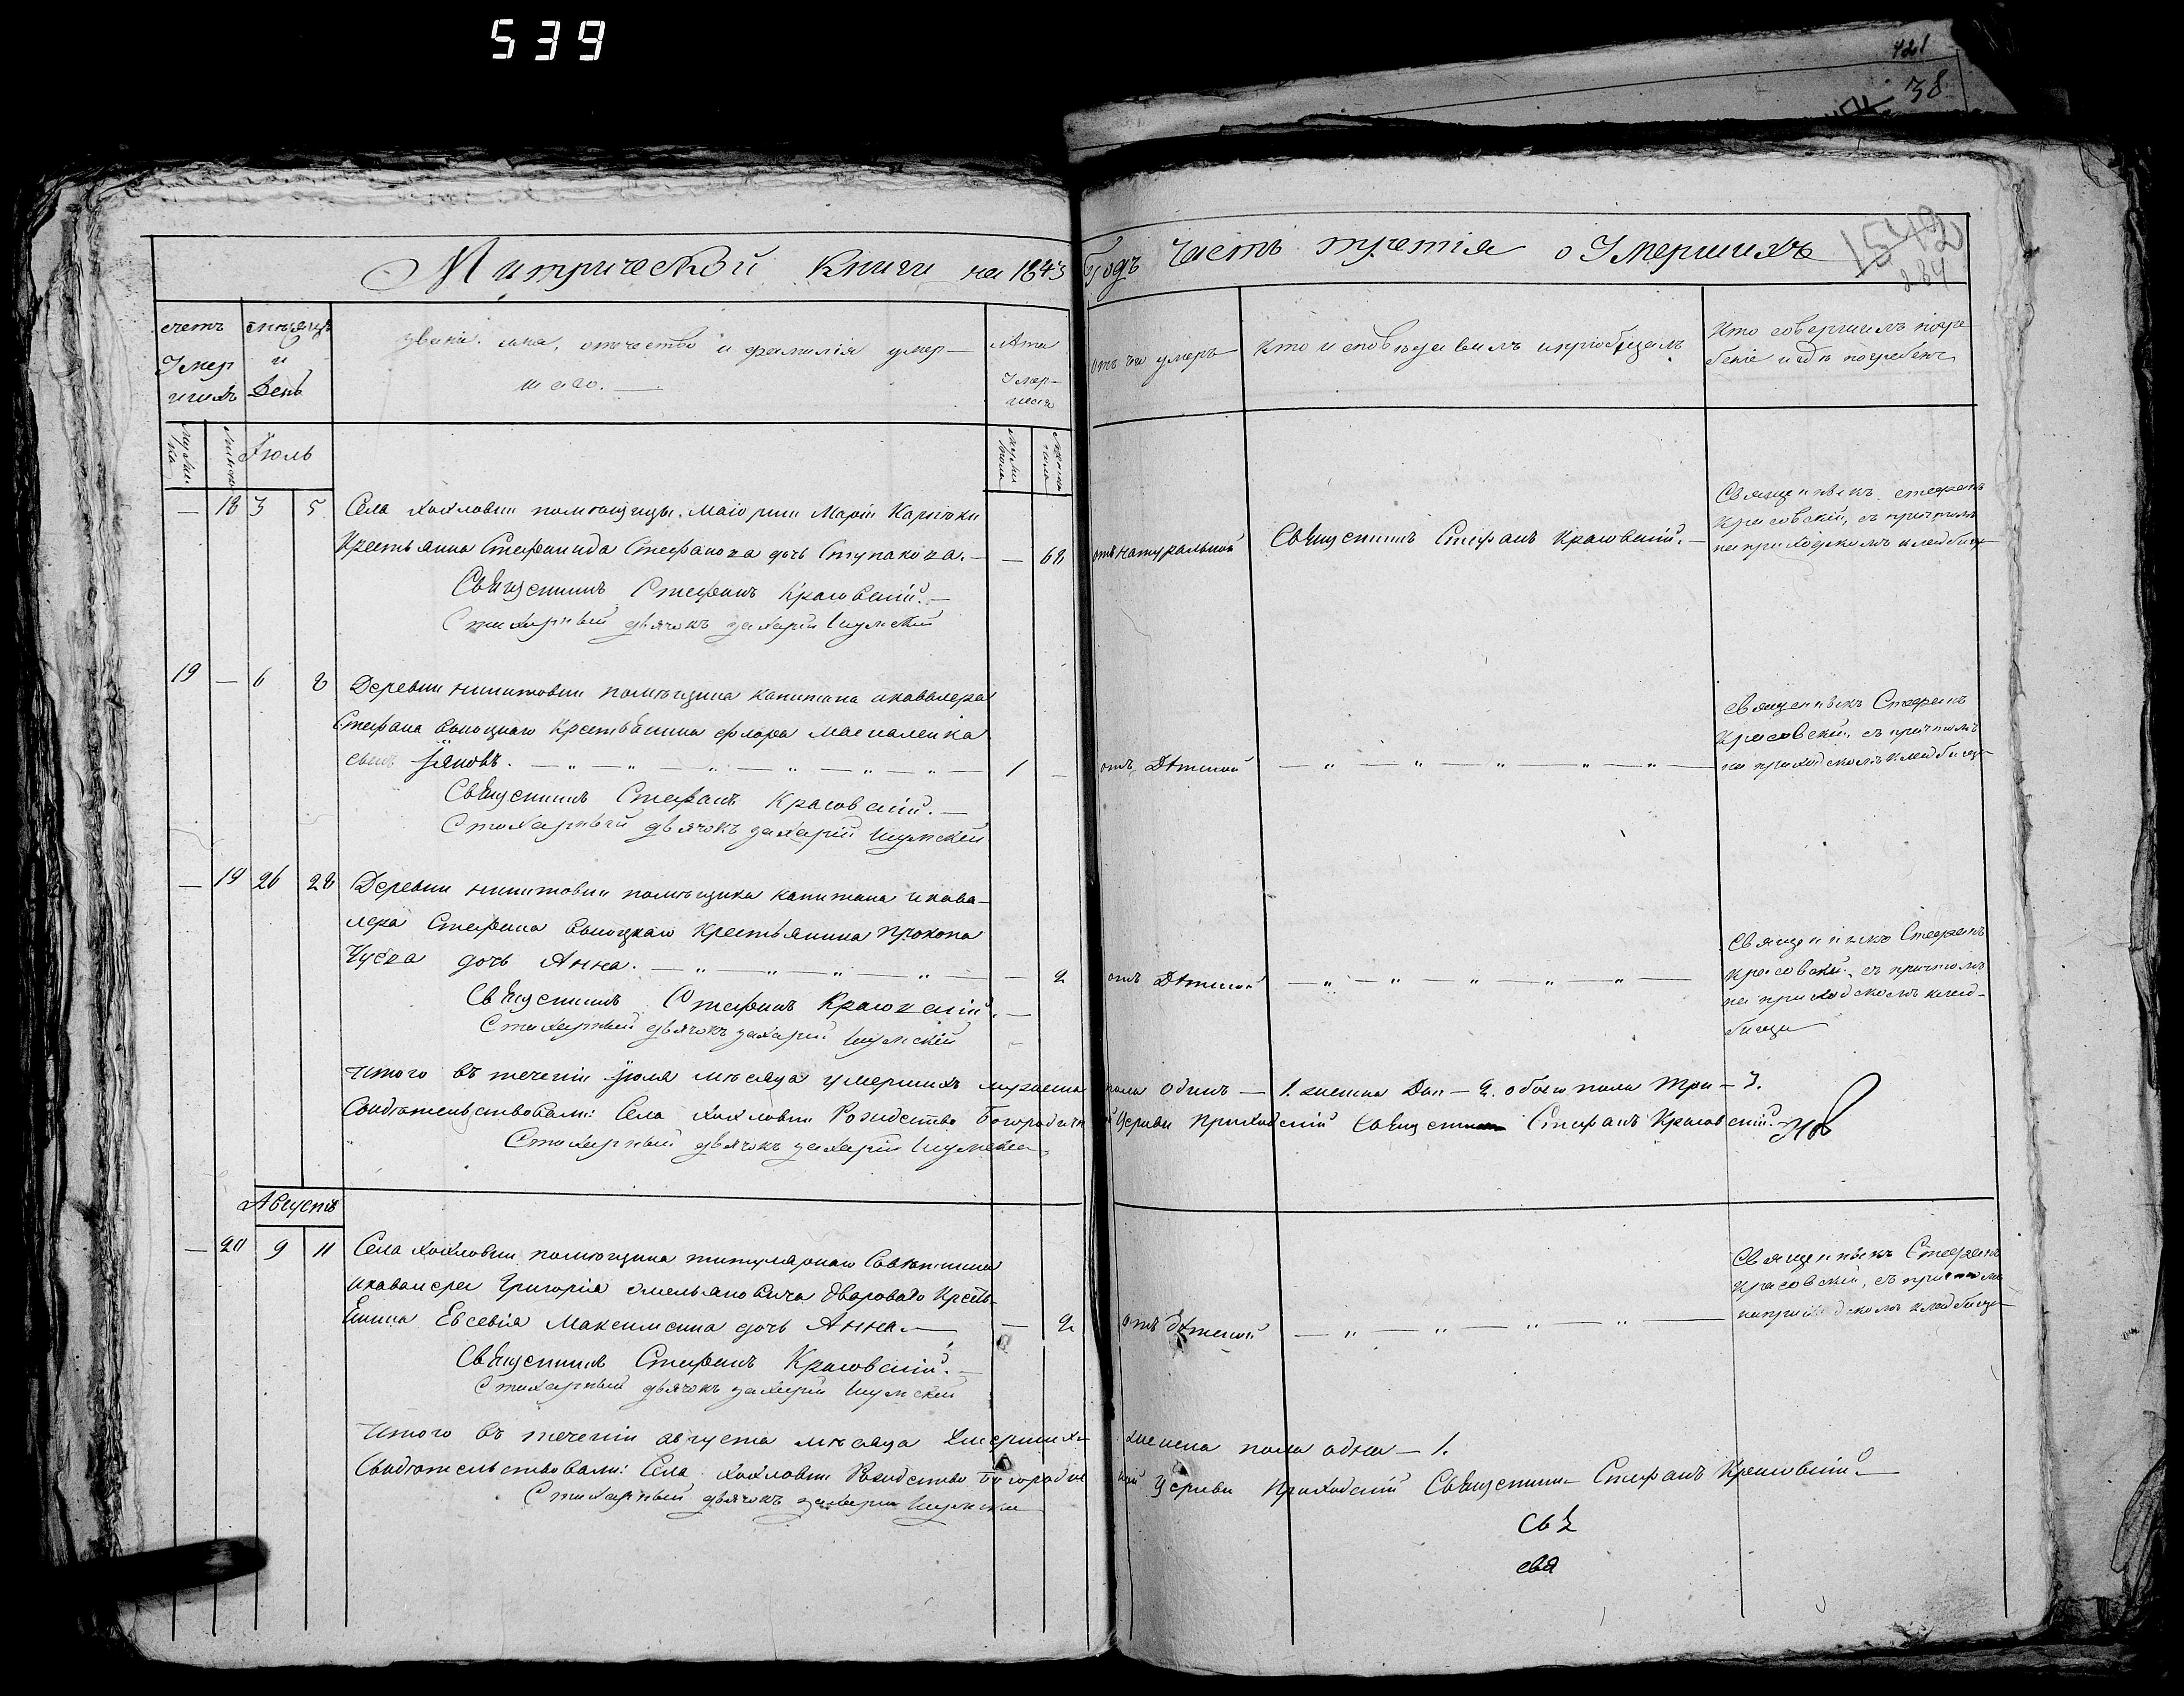 539
421
38
Метрической Книги на 1843 Годъ Часть третія о Умершихъ
1542
234
счетъ Умершихъ
мѣсяцъ и День
званіе, имя, отчество и фамилія умершаго.
лѣта Умершаго
отъ чего умеръ
кто исповѣдывалъ и пріобщалъ
Кто совершилъ погребеніе и гдѣ погребенъ
Іюль
— 18 3 5 Села Хохловки помѣщицы Маіорши Маріи
Крестьянка Стефанида Стефанова дочь Ступакова. — — 68 отъ натуральной Священникъ Стефанъ Красовскій. —
Священникъ Стефанъ Красовскій, съ причтомъ на приходскомъ кладбищѣ
Священникъ Стефанъ Красовскій. —
Стихарный дьячокъ Захарій Шумскій
19 — 6 8 Деревни помѣщика капитана и кавалера
Стефана крестьянина Флора
сынъ Іяковъ. — „ — „ — „ — „ — „ — 1 — отъ Дѣтской — „ — „ — „ — „ — „ —
Священникъ Стефанъ Красовскій, съ причтомъ на приходскомъ кладбищѣ
Священникъ Стефанъ Красовскій. —
Стихарный дьячокъ Захарій Шумскій
— 19 26 28 Деревни помѣщика капитана и кава-
лера Стефана Крестьянина Прокопа
дочь Анна. — „ — „ — „ — „ — — 2 отъ Дѣтской — „ — „ — „ — „ — „ —
Священникъ Стефанъ Красовскій, съ причтомъ на приходскомъ клад-
бищи
Священникъ Стефанъ Красовскій. —
Стихарный дьячокъ Захарій Шумскій
Итого въ теченіи Іюля мѣсяца умершихъ мужеска пола Одинъ — 1. женска Два — 2. обоего пола три — 3.
Свидѣтельствовали: Села Хохловки Рождество Богородичной Церкви Приходскій Священникъ Стефанъ Красовскій.
Стихарный дьячокъ Захарій Шумскій
Августъ
— 20 9 11 Села Хохловки помѣщика титулярнаго Совѣтника
и кавалера Григорія Омельяновича двороваго Кресть-
янина Евсевія Максименка дочь Анна. — — 2 отъ дѣтской — „ — „ — „ — „ —
Священникъ Стефанъ Красовскій, съ причтомъ на приходскомъ кладбищѣ
Священникъ Стефанъ Красовскій. —
Стихарный дьячокъ Захарій Шумскій
Итого въ теченіи августа мѣсяца Умершихъ женска пола одна — 1.
Свидѣтельствовали: Села Хохловки Рождество Богородичной Церкви Приходскій Священникъ Стефанъ Красовскій. —
Стихарный дьячокъ Захарій Шумскій
Свя
свя